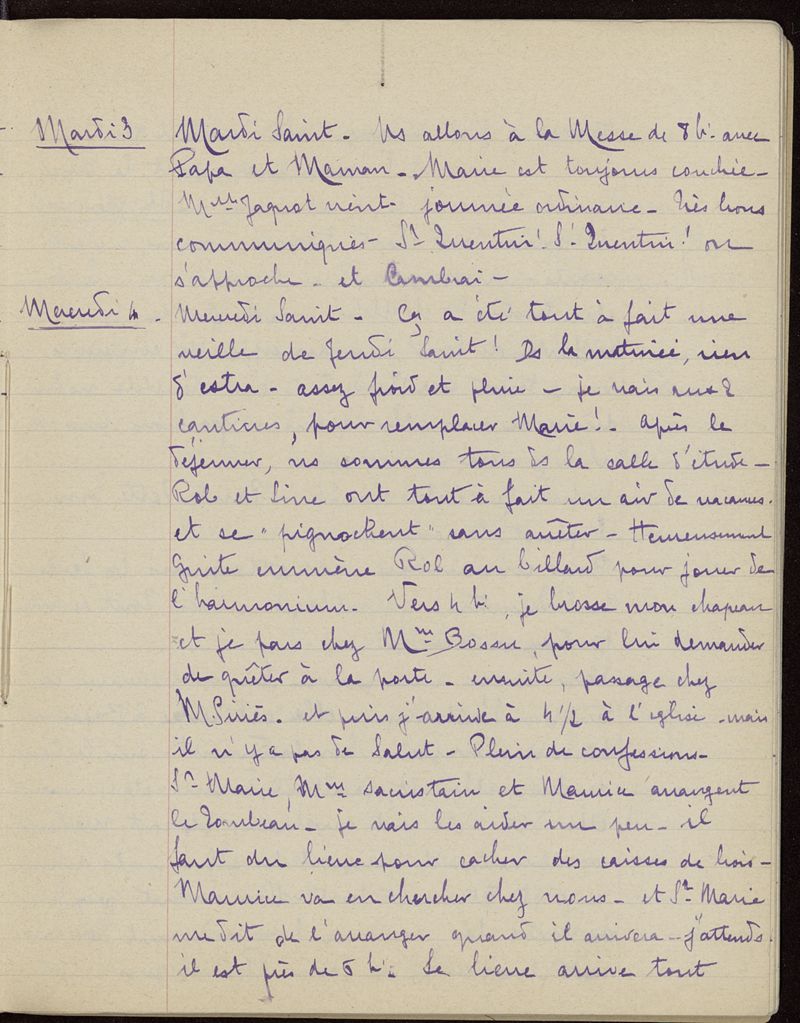 Mardi 3 Mardi Saint - Ns allons à la Messe de 8h avec
Papa et Maman - Marie est toujours couchée -
Melle Jaquot vient - journée ordinaire - très bons
communiqués - St Quentin! St Quentin! on
s'approche - et Cambrai -
Mercredi 4 - Mercredi Saint - Ça a été tout à fait une
veille de Jeudi Saint! Ds la matinée, rien
d'extra - assez froid et pluie - je vais aux 2
, pour remplacer Marie! - Après le
déjeuner, ns sommes tous ds la salle d'étude -
Rob et Line ont tout à fait un air de vacances
et se "pignochent" sans arrêter - Heureusement
Guite emmène Rob au billard pour jouer de
l'harmonium - Vers 4h, je brosse mon chapeau
et je pars chez Mme Bossu, pour lui demander
de quêter à la porte - ensuite, passage chez
M. - et puis j'arrive à 4h 1/2 à l'église - mais
il n'y a pas de Salut - Plein de confessions -
Sr Marie, Mme sacristain et Maurice arrangent
le Tombeau - je vais les aider un peu - il
faut du lierre pour cacher des caisses de bois -
Maurice va en chercher chez nous - et Sr Marie
me dit de l'arranger quand il arrivera - j'attends.
il est près de 5h - Le lierre arrive tout